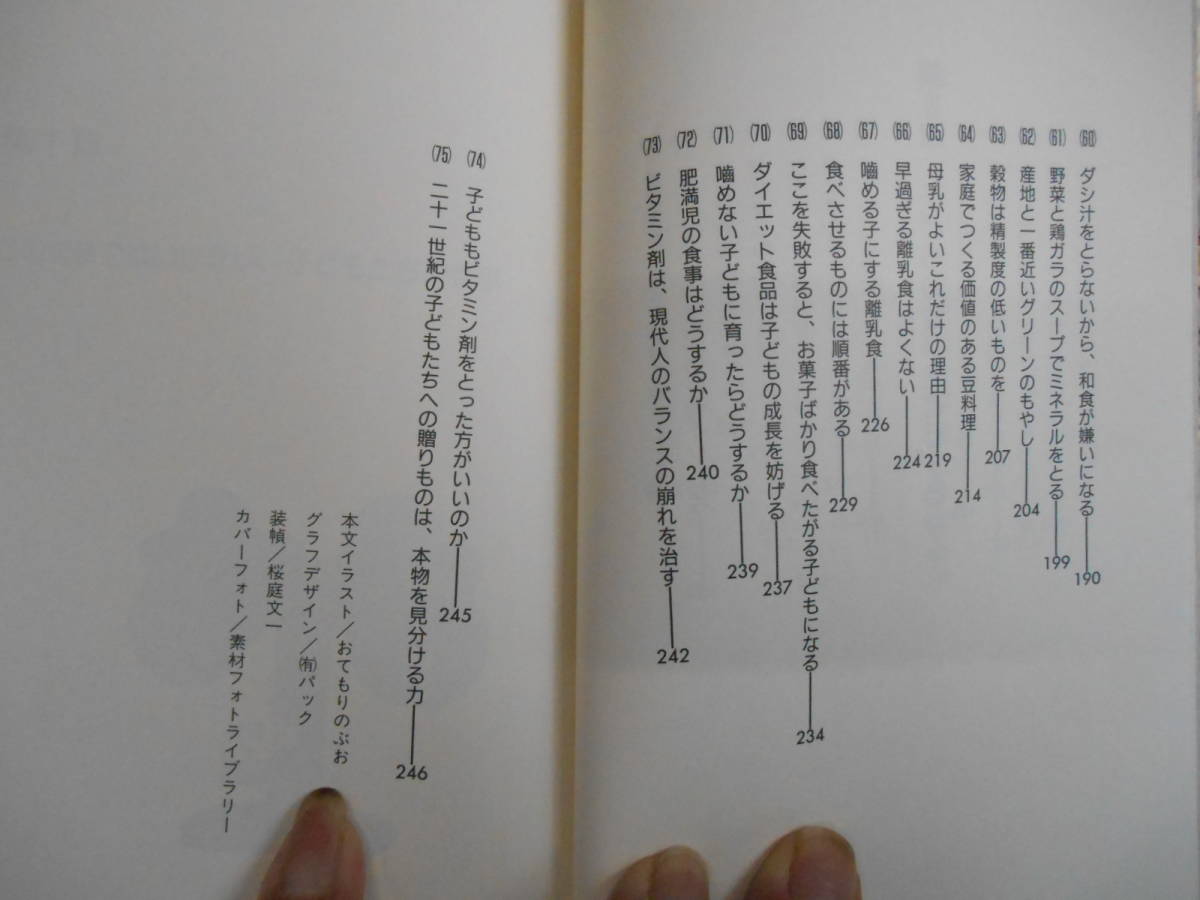 (60) ダシ汁をとらないから、和食が嫌いになる――190
(61) 野菜と鶏ガラのスープでミネラルをとる――199
(62) 産地と一番近いグリーンのもやし――204
(63) 穀物は精製度の低いものを――207
(64) 家庭でつくる価値のある豆料理――214
(65) 母乳がよいこれだけの理由――219
(66) 早過ぎる離乳食はよくない――224
(67) 嚙める子にする離乳食――226
(68) 食べさせるものには順番がある――229
(69) ここを失敗すると、お菓子ばかり食べたがる子どもになる――234
(70) ダイエット食品は子どもの成長を妨げる――237
(71) 嚙めない子どもに育ったらどうするか――239
(72) 肥満児の食事はどうするか――240
(73) ビタミン剤は、現代人のバランスの崩れを治す――242
(74) 子どももビタミン剤をとった方がいいのか――245
(75) 二十一世紀の子どもたちへの贈りものは、本物を見分ける力――246
本文イラスト/おてもりのぶお
グラフデザイン/㈲パック
装幀/桜庭文一
カバーフォト/素材フォトライブラリー